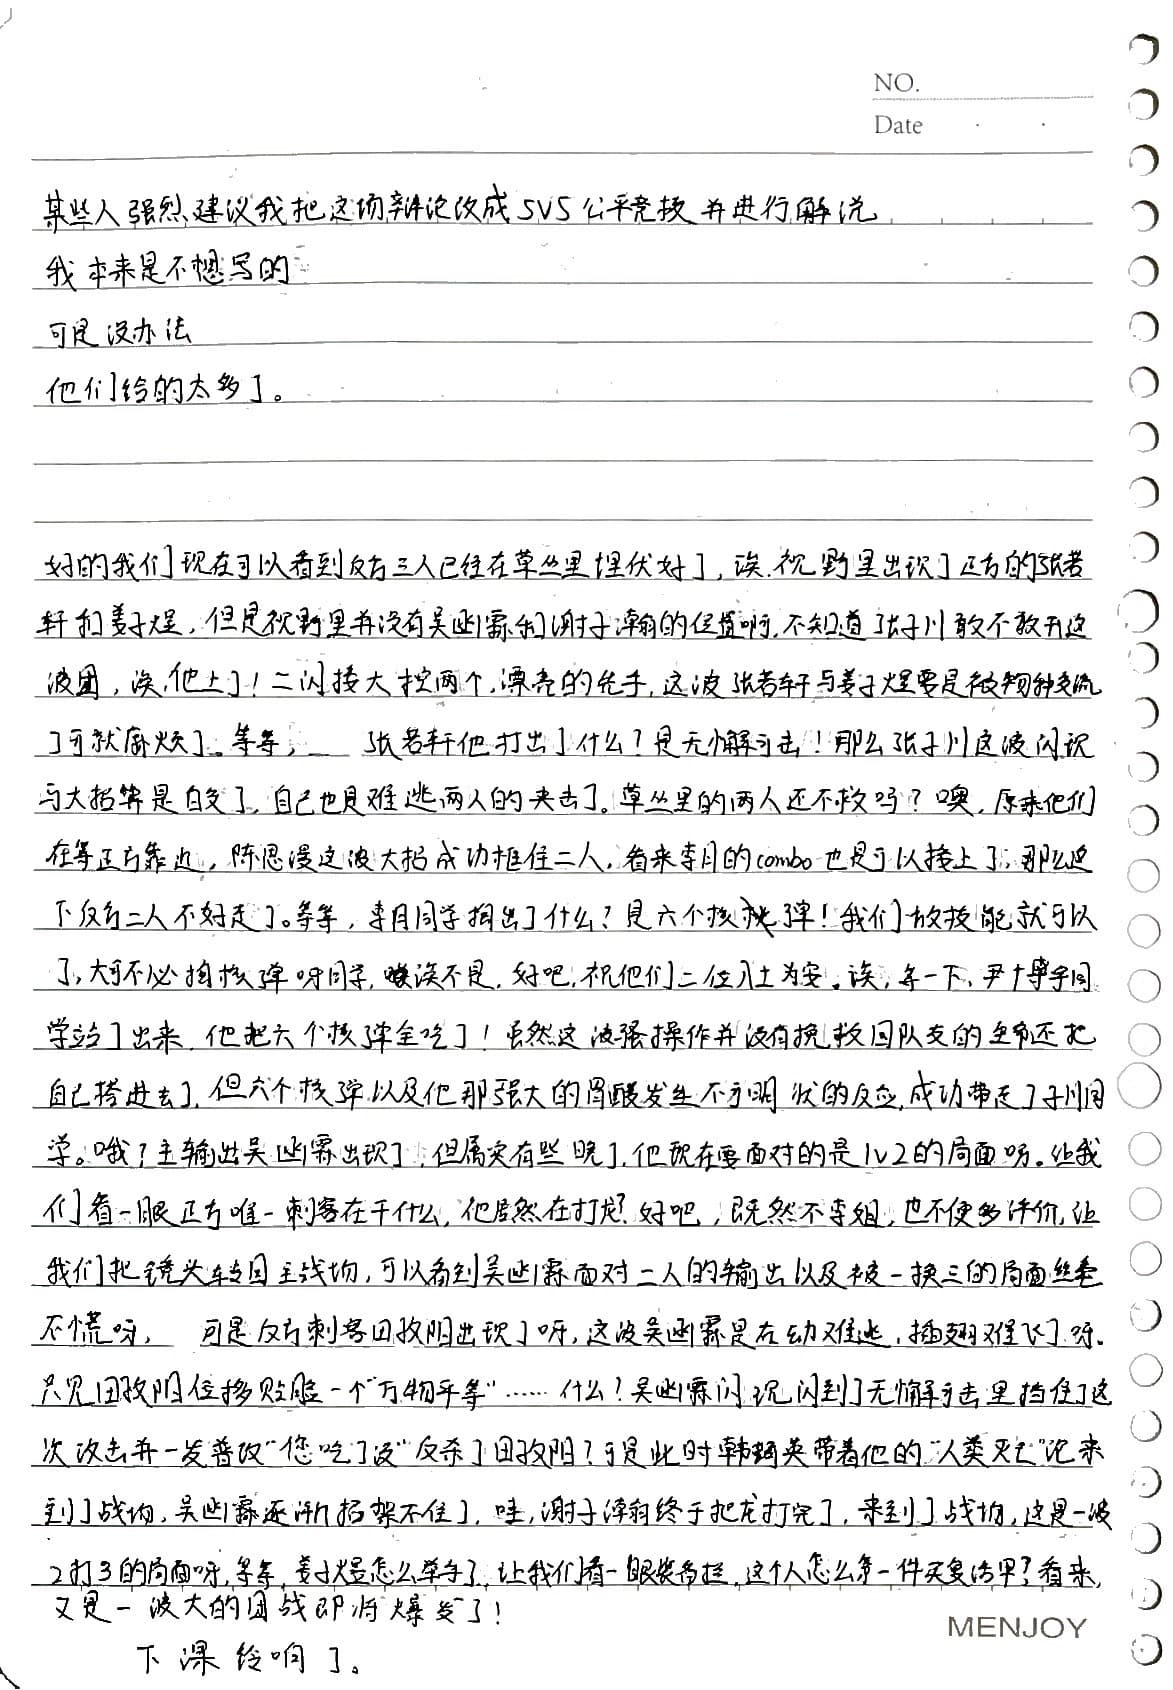 NO.
Date
某些人强烈建议我把这场辩论改成5V5公平竞技并进行解说
我本来是不想写的
可是没办法
他们给的太多了。
好的我们现在可以看到反方三人已经在草丛里埋伏好了，诶，视野里出现了正方的张若
轩和姜子煜，但是视野里并没有吴幽霖和谢子瀚的位置啊，不知道张子川敢不敢开这
波团，诶，他上了！二闪接大控两个，漂亮的先手，这波张若轩与姜子煜要是被物种交流
了可就麻烦了。等等， 张若轩他打出了什么？是无懈可击！那么张子川这波闪现
与大招算是白交了，自己也是难逃两人的夹击了。草丛里的两人还不救吗？噢，原来他们
在等正方靠近，陈思漫这波大招成功框住二人，看来李月的combo也是可以接上了，那么这
下反方二人不好走了。等等，李月同学掏出了什么？是六个核弹！我们放技能就可以
了，大可不必掏核弹呀同学，诶不是，好吧，祝他们二位入土为安。诶，等一下，尹 同
学站了出来，他把六个核弹全吃了！虽然这波骚操作并没有挽救回队友的生命还把
自己搭进去了，但六个核弹以及他那强大的胃酸发生不可明状的反应，成功带走了子川同
学。哦？主输出吴幽霖出现了，但属实有些晚了，他现在要面对的是1v2的局面呀。让我
们看一眼正方唯一刺客在干什么，他居然在打龙？好吧，既然不李姐，也不便多评价，让
我们把镜头转回主战场，可以看到吴幽霖面对二人的输出以及被一换三的局面丝毫
不慌呀， 可是反方刺客田牧阳出现了呀，这波吴幽霖是在劫难逃，插翅难飞了呀。
只见田牧阳位移贴脸一个“万物平等”……什么？吴幽霖闪现闪到了无懈可击里挡住了这
次攻击并一发普攻“您吃了没”反杀了田牧阳？于是此时韩 英带着他的“人类灭亡”论来
到了战场，吴幽霖逐渐招架不住了，哇，谢子瀚终于把龙打完了，来到了战场，这是一波
2打3的局面呀，等等，姜子煜怎么举手了，让我们看一眼装备栏，这个人怎么第一件买复活甲？看来，
又是一波大的团战即将爆发了！
下课铃响了。
MENJOY